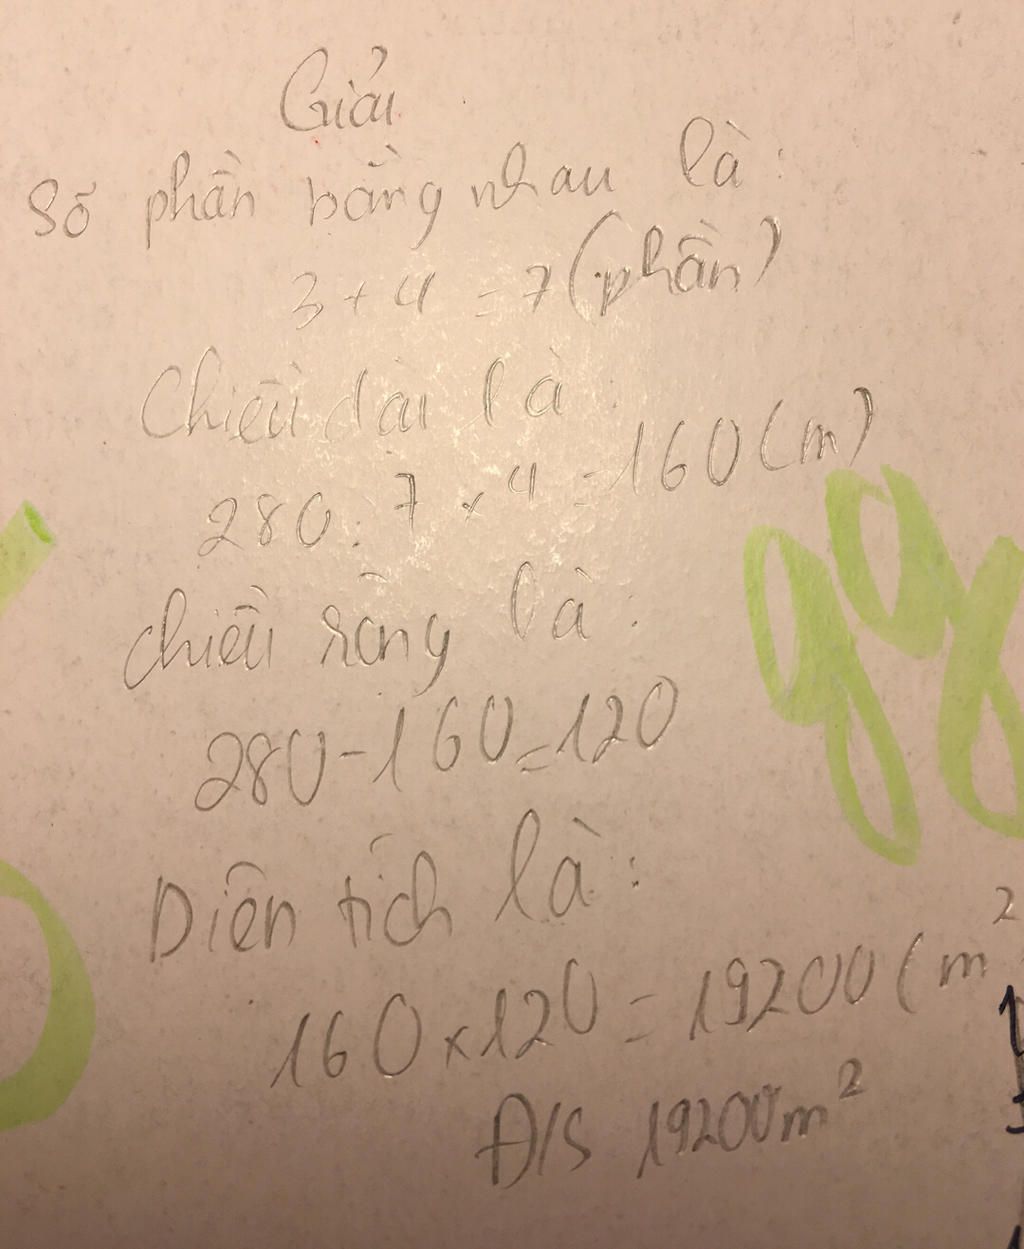 Giải
Số phần bằng nhau là:
3 + 4 = 7 (phần)
Chiều dài là:
280 : 7 x 4 = 160 (m)
Chiều rộng là:
280 - 160 = 120
Diện tích là:
160 x 120 = 19200 (m²
Đ/S 19200m²